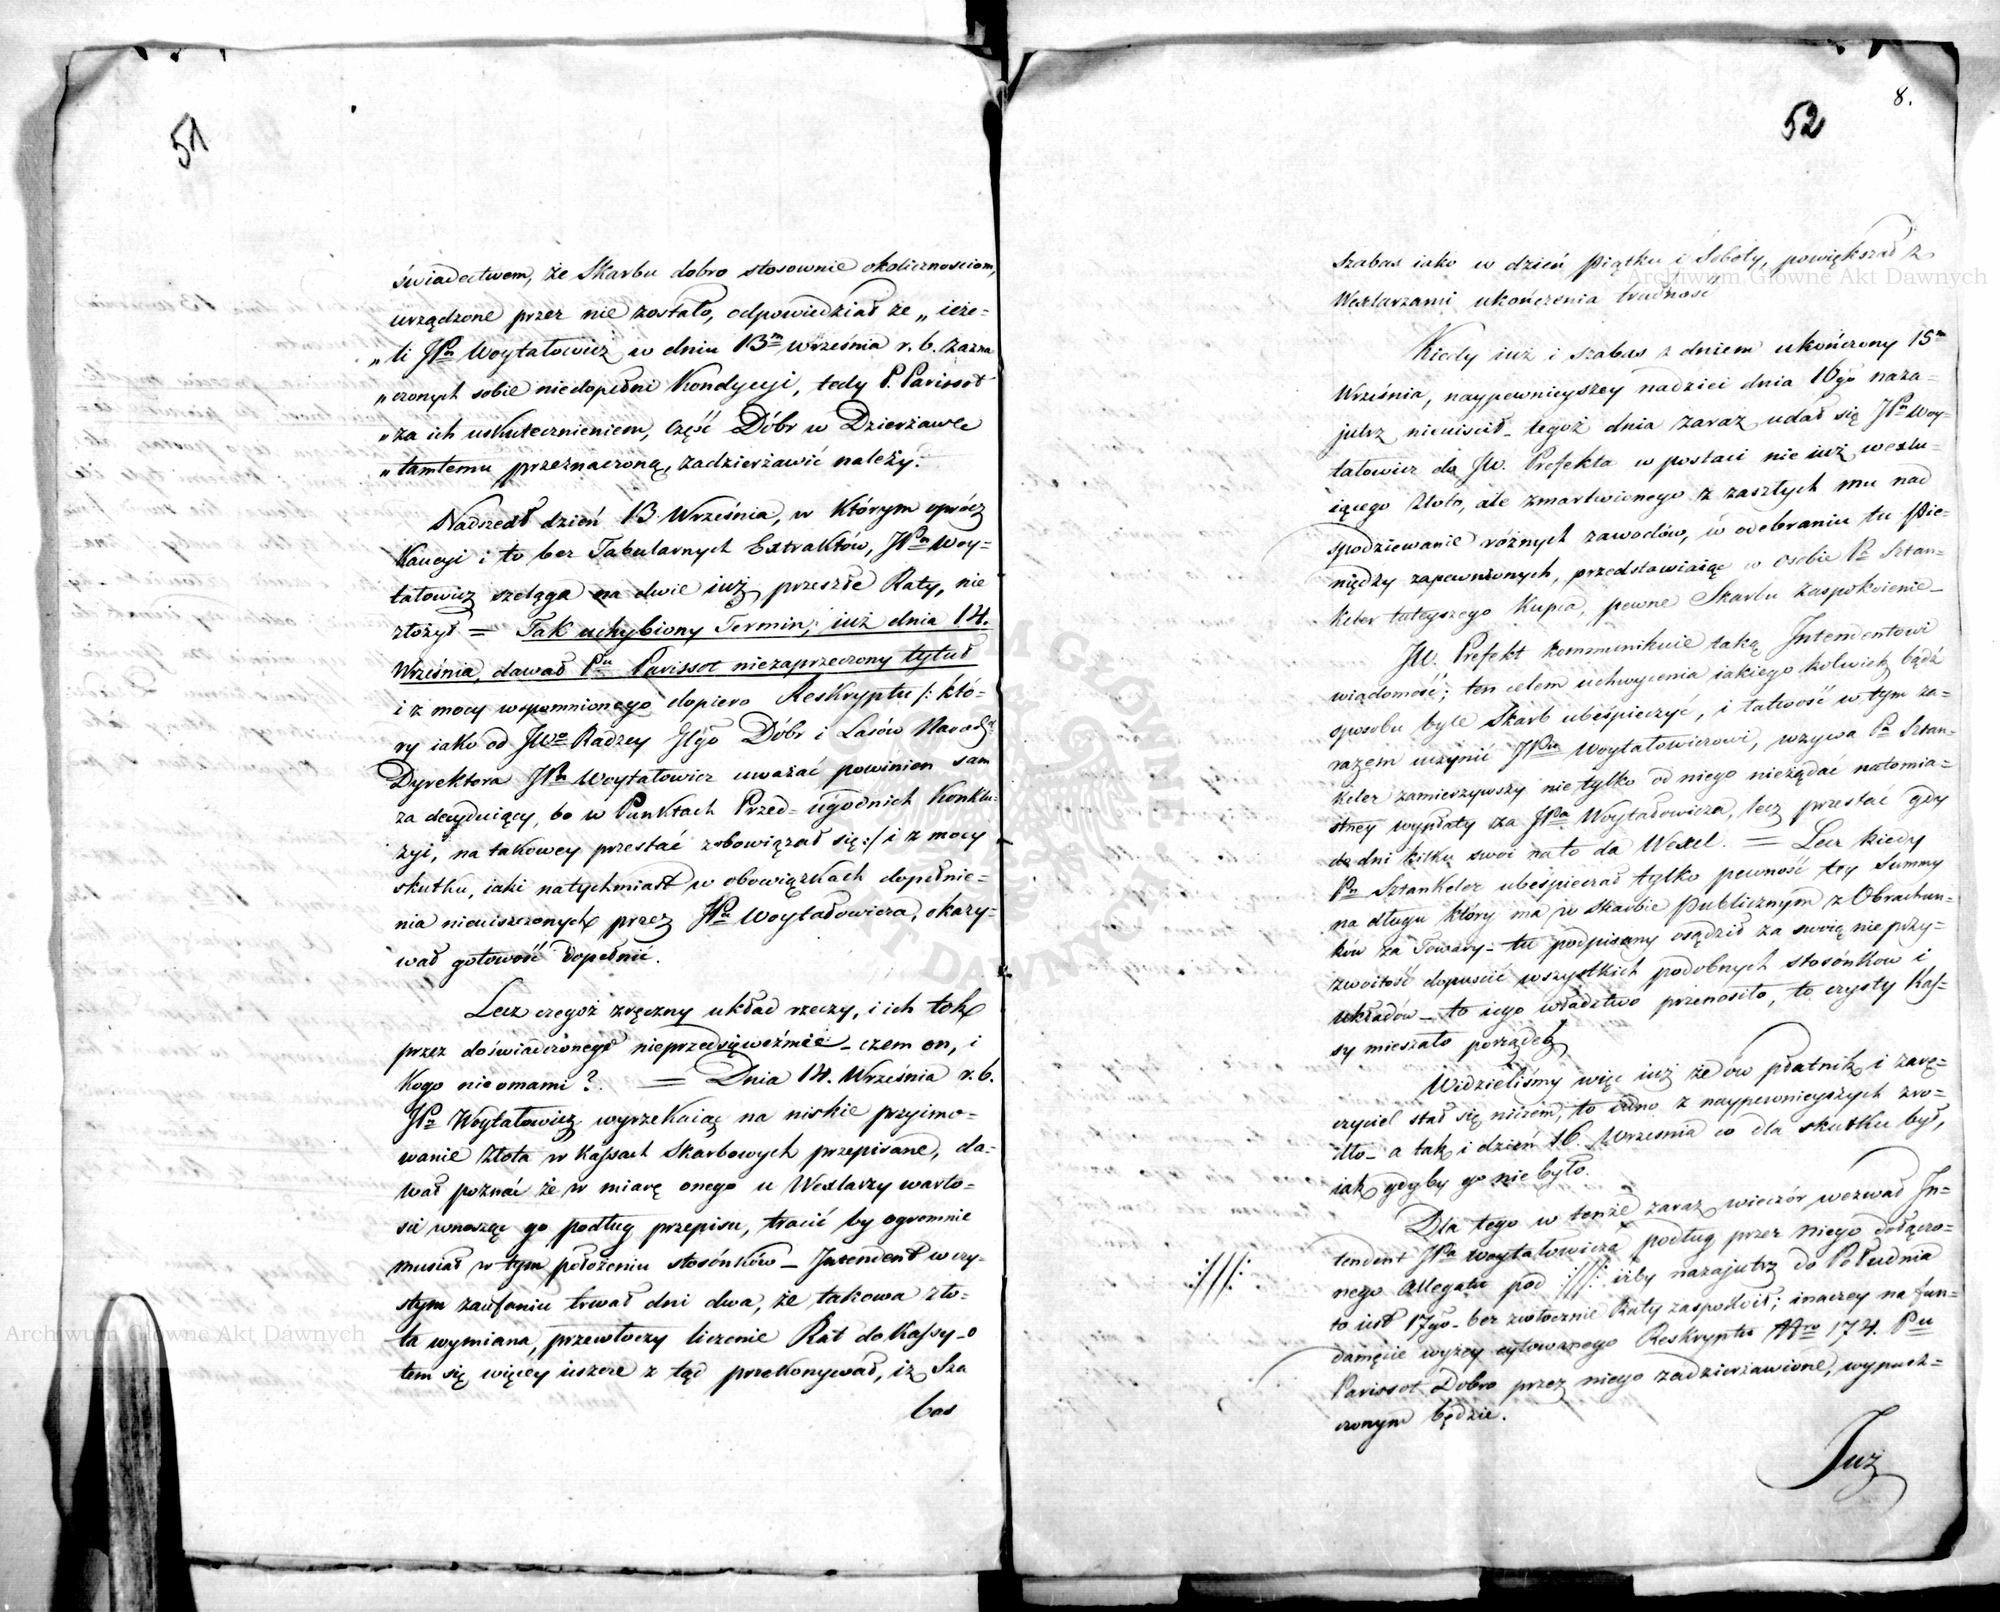 51
świadectwem, że Skarbu dobro stosownie okolicznosciom,
urządzone przez nie zostało, odpowiedział że „ ieże-
„ li JPn Woytałowicz w dniu 13m Września r. b. zazna
„ czonych sobie niedopełni Kondycyi, tedy P. Parissot
„ za ich uskutecznieniem, część Dóbr w Dzierżawę
„ tamtemu przeznaczoną, zadzierżawić należy.
Nadszedł dzień 13 Września, w którym oprócz
Kaucyi i to bez Tabularnych Extraktów, JPn Woy-
tałowicz szeląga na dwie iuż przeszłe Raty, nie
złożył = Tak uchybiony Termin, iuż dnia 14.
Września, dawał Pu Parissot niezaprzeczony tytuł
i z mocy wspomnionego dopiero Reskryptu /: któ-
ry iako od JWo Radzcy Jlgo Dóbr i Lasów Narod:
Dyrektora JPn Woytałowicz uważać powinien sam
za decyduiący, bo w Punktach Przed-ugodnich Konklu-
zyi, na takowey przestać zobowiązał się :/ i z mocy
skutku, iaki natychmiast w obowiązkach dopełnie-
nia nieuiszczonych przez JPa Woytałowicza, okazy-
wał gotowość dopełnić.
Lecz czegoż zręczny układ rzeczy, i ich tok
przez doświadczonego nieprzedsięweźmie - czem on, i
kogo nieomami? = Dnia 14. Września r. b.
JPn Woytałowicz wyrzekaiąc na niskie przyimo-
wanie Złota w Kassach Skarbowych przepisane, da-
wał poznać że w miarę onego u Wexlarzy warto-
ści wnosząc go podług przepisu, tracić by ogromnie
musiał w tym położeniu stosónków - Intendent w czy-
stym zaufaniu trwał dni dwa, że takowa zło-
ta wymiana, przewłoczy liczenie Rat do Kassy - o
tem się więcey ieszcze z tąd przekonywał, iż Sza
bas
8.
52
szabas iako w dzień Piątku i Soboty, powiększał z
Wexlarzami ukończenia trudność
Kiedy iuż i szabas z dniem ukończony 15m
Września, naypewnieyszey nadziei dnia 16go naza-
jutrz nieuiścił - tegoż dnia zaraz udał się JPn Woy-
tałowicz do JW. Prefekta w postaci nie iuż wexlu-
iącego złoto, ale zmartwionego z zaszłych mu nad
spodziewanie różnych zawodów, w odebraniu tu Pie-
niędzy zapewnionych, przedstawiaiąc w osobie Pa Sztan-
keler tuteyszego Kupca, pewne Skarbu zaspokoienie -
JW. Prefekt kommunikuie taką Intendentowi
wiadomość; ten celem uchwycenia iakiego kolwiek bądź
sposobu byle Skarb ubespieczyć, i łatwość w tym za-
razem uczynić JPu Woytałowiczowi, wzywa Pa Sztan-
keler zamierzywszy nietylko od niego nieżądać natomia-
stney wypłaty za JPa Woytałowicza, lecz przestać gdy
do dni kilku swoi na to da Wexel. = Lecz kiedy
Pn Sztankeler ubespieczał tylko pewność tey Summy
na długu który ma w Skarbie Publicznym z Obrachun-
ków za Towary - tu podpisany osądził za swoią nieprzy-
zwoitość dopuścić wszystkich podobnych stosónkow i
układów - to iego władztwo przenosiło, to czysty Kas-
sy mieszało porządek
Widzieliśmy więc iuż że ów płatnik i zarę-
czyciel stał się niczem, to iedno z naypewnieyszych zro-
dło - a tak i dzień 16. Września co dla skutku był,
iak gdyby go nie było.
Dla tego w tenże zaraz wieczór wezwał In-
tendent JPa Woytałowicza podług przez niego dołączo-
:///: nego Allegatu pod :///: iżby nazajutrz do Południa
to iest 17go - bez zwłocznie Raty zaspokoił; inaczey na fun-
damęcie wyżey cytowanego Reskryptu Nro 174. Pu
Parissot Dobra przez niego zadzierżawione, wypusz-
czonym będzie.
Juz
Archiwum Główne Akt Dawnych
Archiwum Główne Akt Dawnych